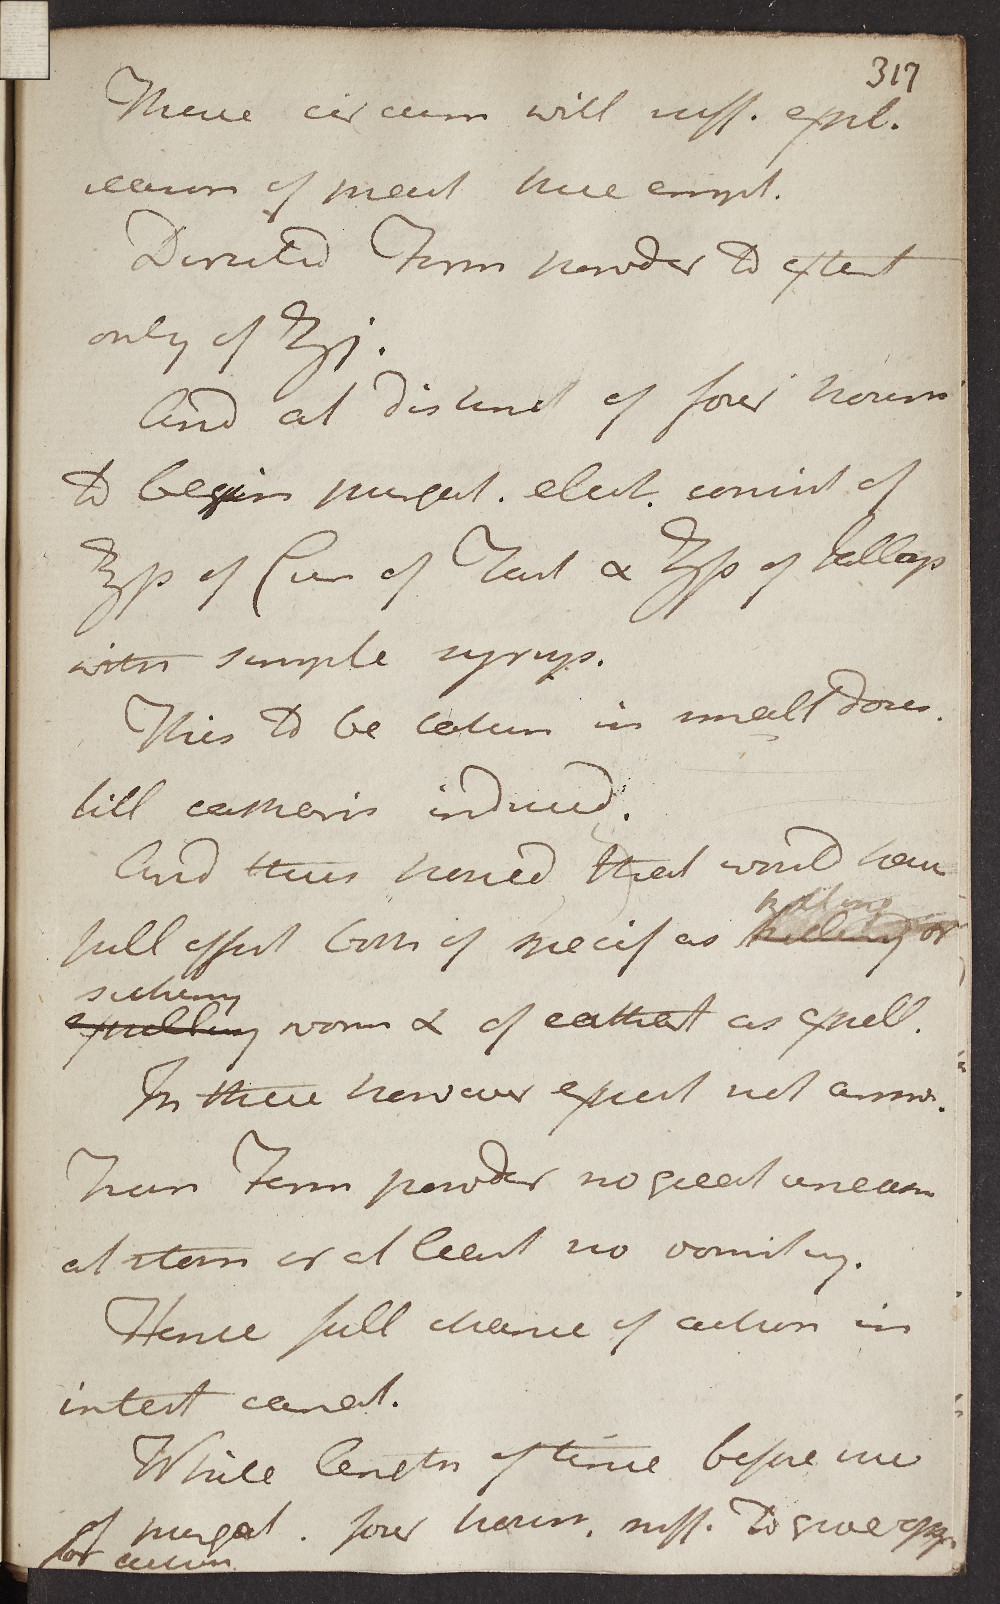 317
These circum will suff. expl.
reason of pract here empl.
Directed Fern powder to extent
only of ʒj.
And at distanc of four hours
to begin purgat. elect. consist of
ʒſs of Crem of Tart & ʒſs of Jallap
with simple syrup.
This to be taken in small doses.
till cathars induced.
And thus hoped that would have
full effect both of specif as killing or
sickeng
expelling worm & of cathart as expell.
In these however expect not answ.
From Fern powder no great uneasn
at stom or at least no vomiting.
Hence full chance of action in
intest canal.
While length of time before use
of purgat. four hours. suff. to give opp.
for action.